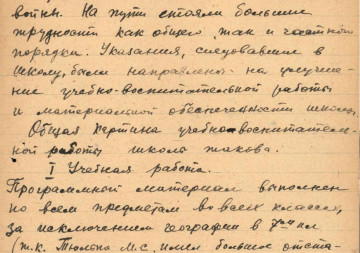 войны. На пути стояли большие
трудности как общего так и частного
порядка. Указания, следовавшие в
школу, были направлены на улучше-
ние учебно-воспитательной работы
и материальной обеспеченности школы.
Общая картина учебно-воспитатель-
ной работы школы такова.
I Учебная работа.
Программный материал выполнен
по всем предметам во всех классах,
за исключением географии в 7ом кл
(т.к. Тюлько М.С. имел большое отста-